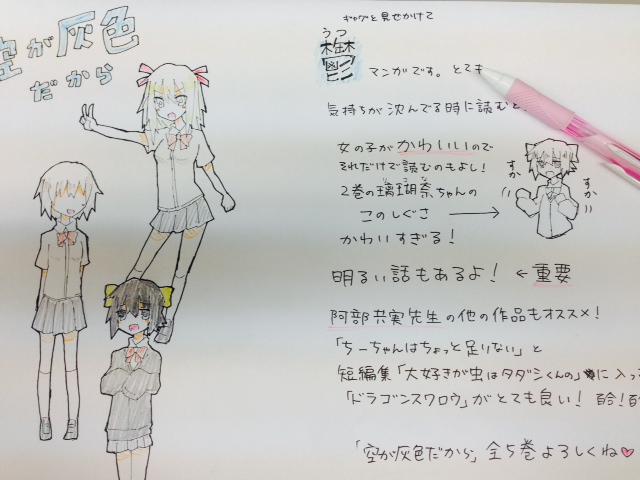 空が灰色
だから
ギャグと見せかけて
うつ
鬱 マンガです。とても
気持ちが沈んでる時に読むと
女の子がかわいいので
それだけで読むのもよし!
2巻の璃瑚奈ちゃんの
このしぐさ →
かわいすぎる!
すか
すか
明るい話もあるよ! ← 重要
阿部共実先生の他の作品もオススメ!
「ちーちゃんはちょっと足りない」と
短編集「大好きが虫はタダシくんの」に入っ
「ドラゴンスワロウ」がとても良い!
「空が灰色だから」全5巻よろしくね♥